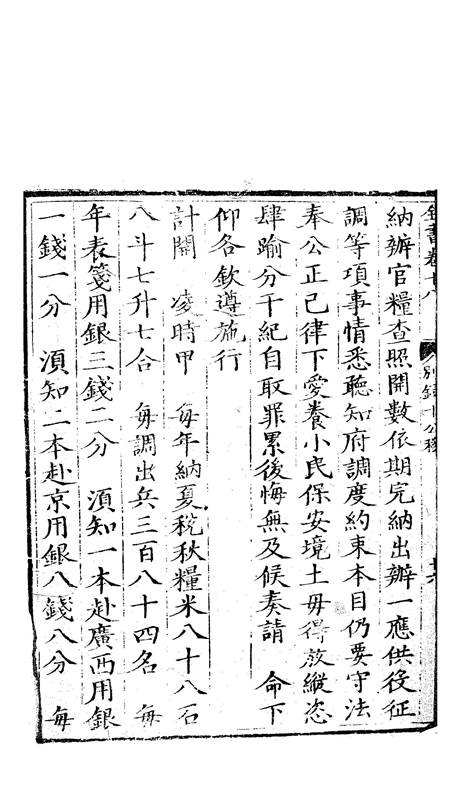 全書卷十八 別錄十公移
納辦官糧查照開數依期完納出辦一應供役征
調等項事情悉聽知府調度約束本目仍要守法
奉公正己律下愛養小民保安境土毋得放縱恣
肆踰分干紀自取罪累後悔無及候奏請 命下
仰各欽遵施行
計開 凌時甲 每年納夏稅秋糧米八十八石
八斗七升七合 每調出兵三百八十四名 每
年表箋用銀三錢二分 須知一本赴廣西用銀
一錢一分 須知二本赴京用銀八錢八分 每